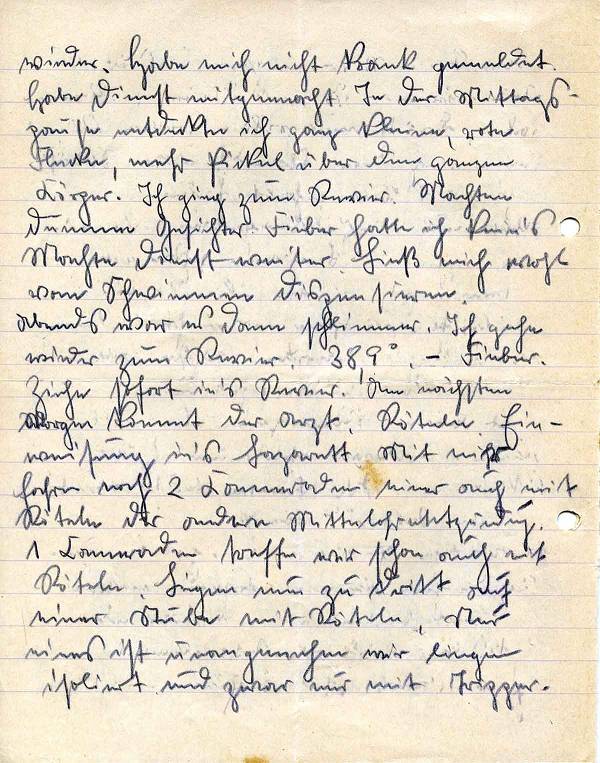 wieder. Habe mich nicht Krank gemeldet.
Habe Dienst mitgemacht In der Mittags-
pause entdeckte ich ganz kleine, rote
Flecke, mehr Pickel über den ganzen
Körper. Ich ging zum Revier. Machten
dumme Gesichter Fieber hatte ich kein's
Machte Dienst weiter ließ mich wohl
vom Schwimmen dispensieren.
abends war es dann schlimmer. Ich gehe
wieder zum Revier. 38,9°. – Fieber.
Ziehe sofort in's Revier. Am nächsten
Morgen kommt der Arzt. Röteln Ein-
weisung in's Lazarett Mit mir
fahren noch 2 Kammeraden einer auch mit
Röteln der andere Mittelohrentzündung.
1 Kammeraden treffen wir schon auch mit
Röteln. Liegen nun zu dritt auf
einer Stube mit Röteln. Nur
eines ist unangenehm wir liegen
isoliert und zwar nur mit Tripper.